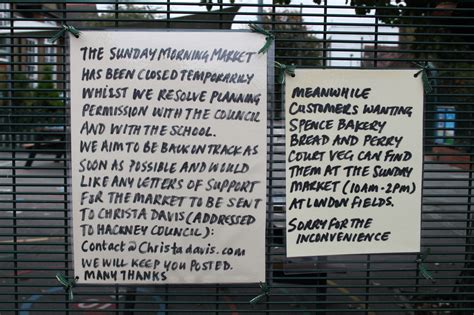 THE SUNDAY MORNING MARKET
HAS BEEN CLOSED TEMPORARILY
WHILST WE RESOLVE PLANNING
PERMISSION WITH THE COUNCIL
AND WITH THE SCHOOL.
WE AIM TO BE BACK ON TRACK AS
SOON AS POSSIBLE AND WOULD
LIKE ANY LETTERS OF SUPPORT
FOR THE MARKET TO BE SENT
TO CHRISTA DAVIS (ADDRESSED
TO HACKNEY COUNCIL):
Contact@Christadavis.com
WE WILL KEEP YOU POSTED.
MANY THANKS
MEANWHILE
CUSTOMERS WANTING
SPENCE BAKERY
BREAD AND PERRY
COURT VEG CAN FIND
THEM AT THE SUNDAY
MARKET (10AM-2PM)
AT LONDON FIELDS.
SORRY FOR THE
INCONVENIENCE